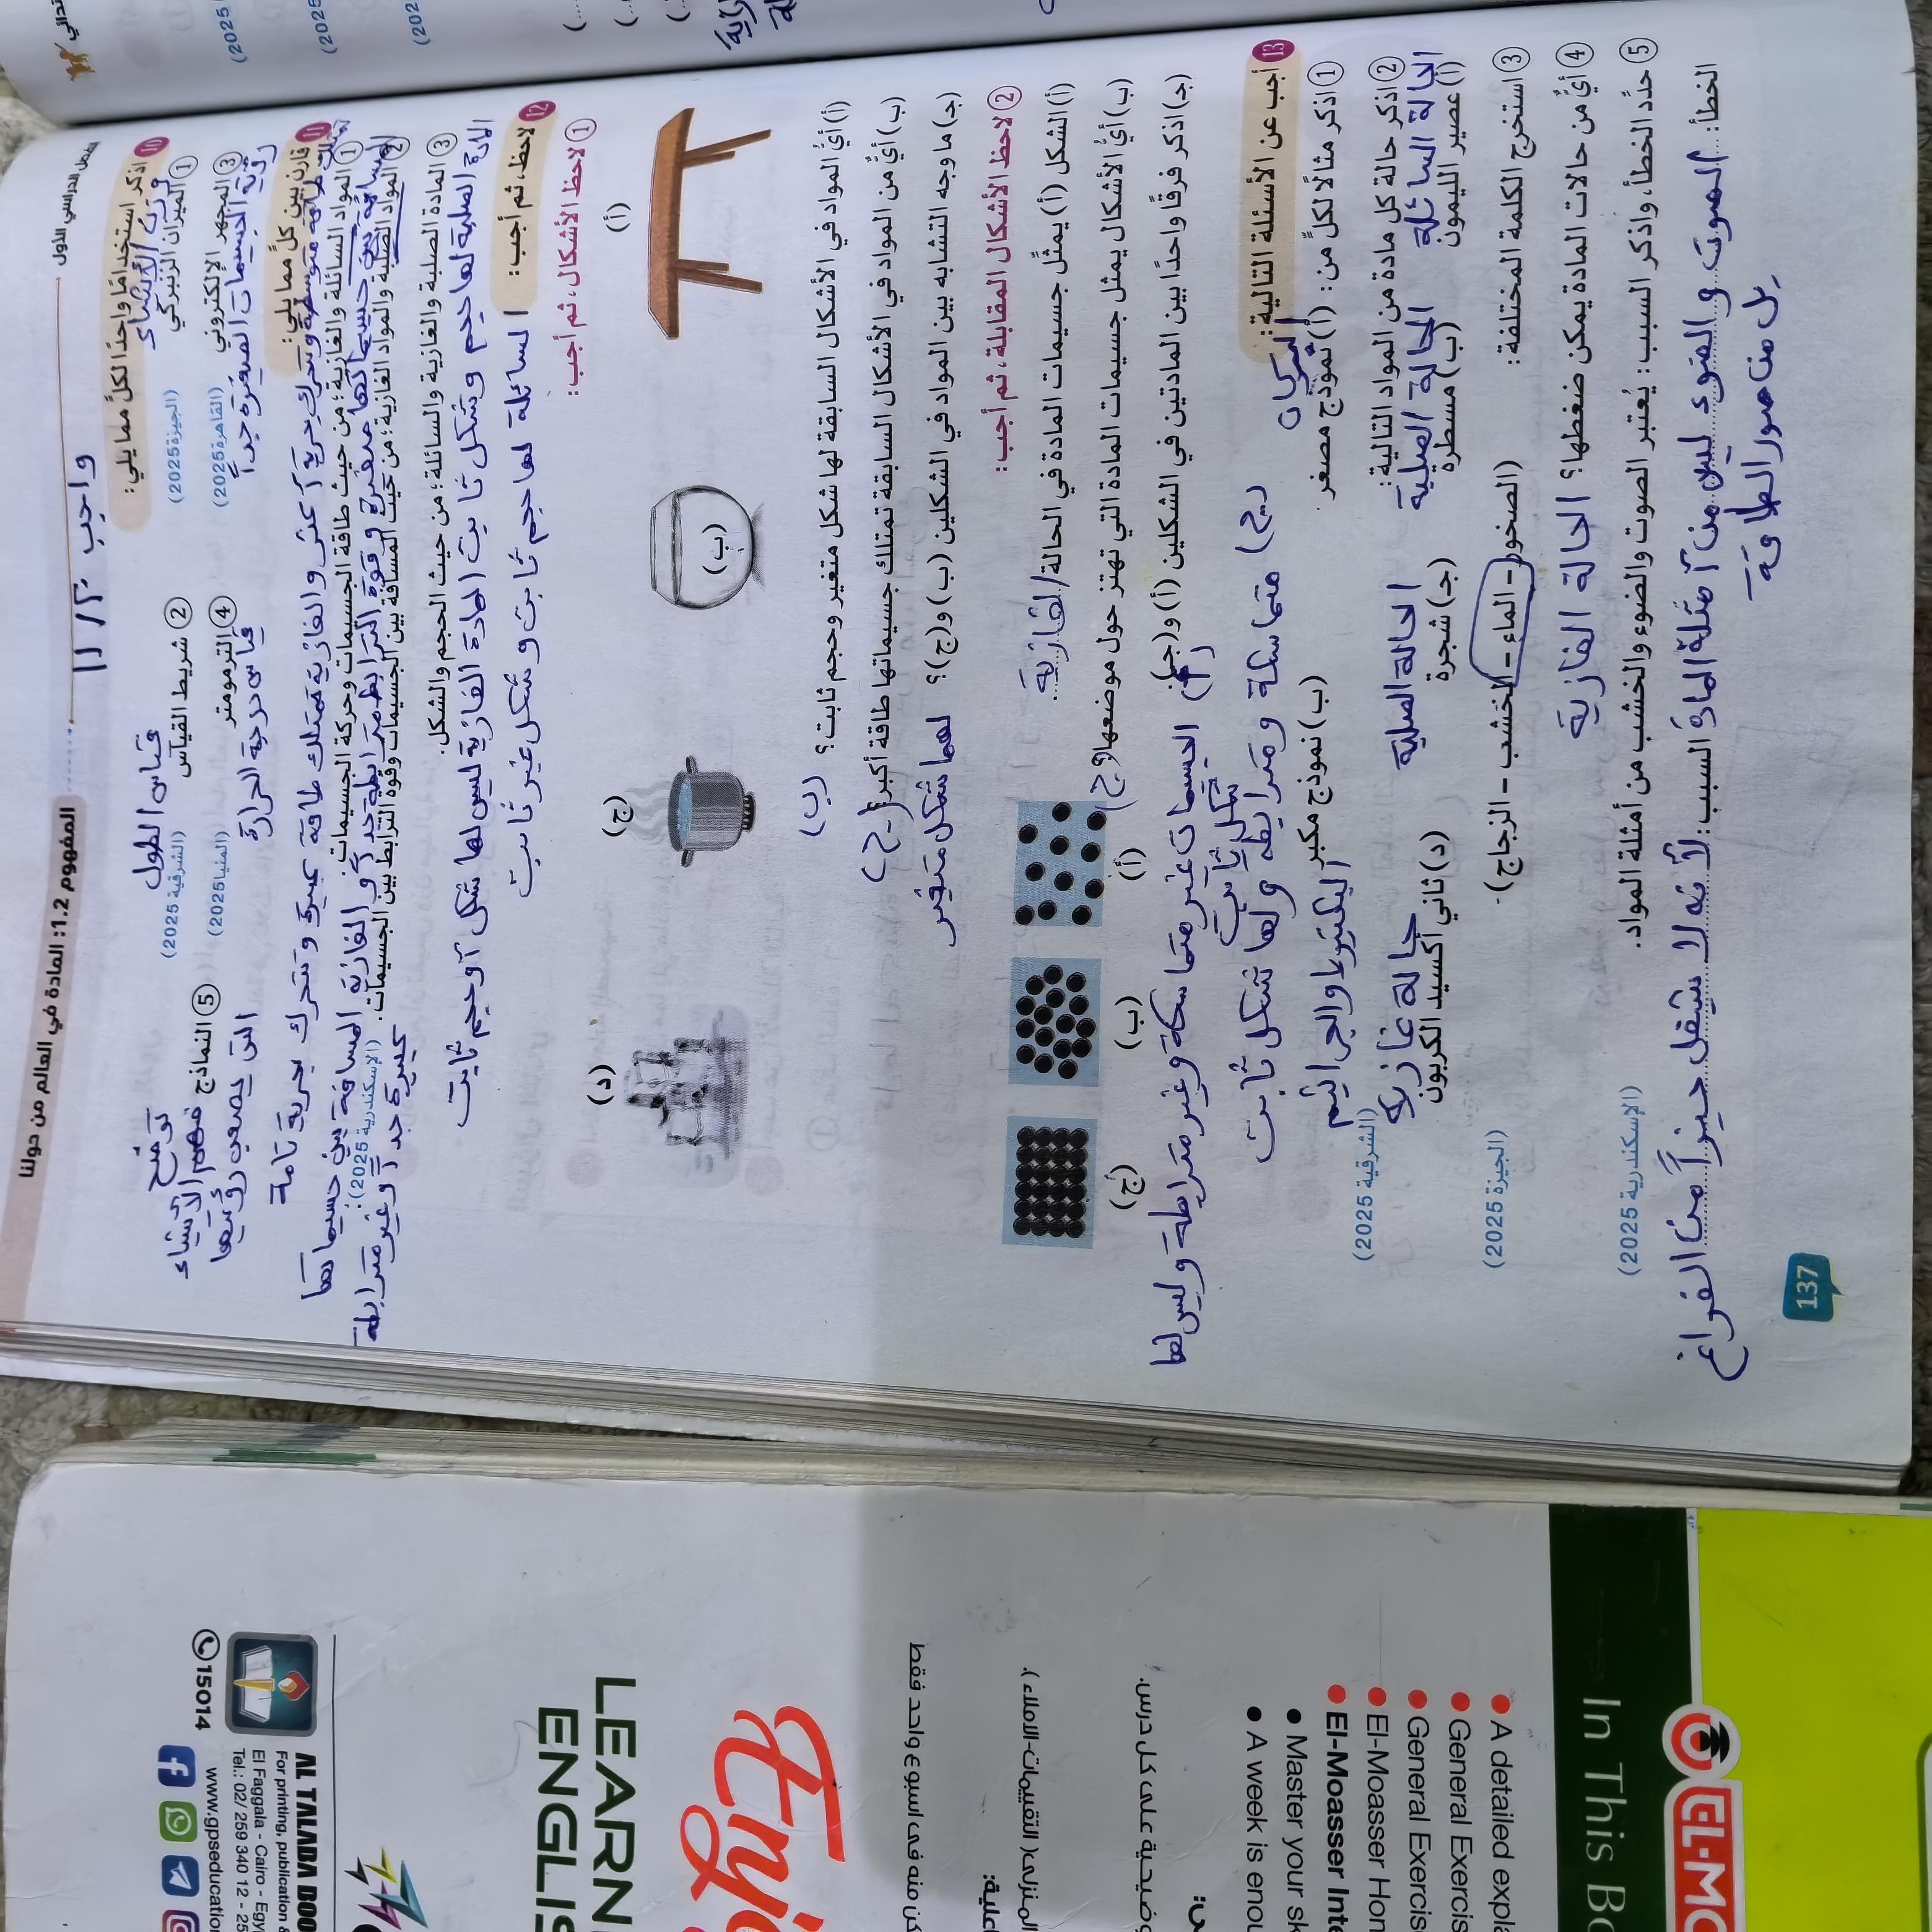 الفصل الدراسي الأول
المفهوم 1.2: المادة في العالم من حولنا
واجب
10 اذكر استخدامًا واحدًا لكلٍّ مما يلي:
1 الميزان الزنبركي (الجيزة 2025)
وزن الأشياء
2 شريط القياس (الشرقية 2025)
قياس الطول
3 المجهر الإلكتروني (القاهرة 2025)
رؤية الجسيمات الصغيرة جداً
4 الترمومتر (المنيا 2025)
قياس درجة الحرارة
5 النماذج
توضح فهم الأشياء التى يصعب رؤيتها
11 قارن بين كلٍّ مما يلي:
1 المواد السائلة والغازية؛ من حيث طاقة الجسيمات وحركة الجسيمات.
متوسطة وتتحرك بحرية أكثر والغازية تمتلك طاقة كبيرة وتتحرك بحرية تامة
2 المواد الصلبة والمواد الغازية؛ من حيث المسافة بين الجسيمات وقوة الترابط بين الجسيمات. (الإسكندرية 2025)
المسافة بين جسيماتها صغيرة و قوة الترابط مترابطة جداً و الغازية المسافة بين جسيماتها كبيرة جداً و غير مترابطة
3 المادة الصلبة والغازية والسائلة؛ من حيث الحجم والشكل.
المادة الصلبة لها حجم وشكل ثابت المادة الغازية ليس لها شكل أو حجم ثابت
السائلة لها حجم ثابت وشكل غير ثابت
12 لاحظ، ثم أجب:
1 لاحظ الأشكال، ثم أجب:
(أ)
(ب)
(ج)
(د)
(أ) أيُّ المواد في الأشكال السابقة لها شكل متغير وحجم ثابت؟ (ب)
(ب) أيٌّ من المواد في الأشكال السابقة تمتلك جسيماتها طاقة أكبر؟ (ج)
(جـ) ما وجه التشابه بين المواد في الشكلين (ب) و(ج)؟ لهما شكل متغير
2 لاحظ الأشكال المقابلة، ثم أجب:
(أ) الشكل (أ) يمثل جسيمات المادة في الحالة الغازية
(ب) أيُّ الأشكال يمثل جسيمات المادة التي تهتز حول موضعها؟ (ج)
(جـ) اذكر فرقًا واحدًا بين المادتين في الشكلين (أ) و(جـ).
(أ) الجسيمات غير متماسكة وغير مترابطة وليس لها شكل ثابت
(ج) متماسكة ومترابطة ولها شكل ثابت
(أ)
(ب)
(ج)
13 أجب عن الأسئلة التالية:
1 اذكر مثالًا لكلٍّ من: (أ) نموذج مصغر. (ب) نموذج مكبر (الشرقية 2025)
البركان
البكتيريا والجراثيم
2 اذكر حالة كل مادة من المواد التالية:
(أ) عصير الليمون (ب) مسطرة (جـ) شجرة (د) ثاني أكسيد الكربون
الحالة السائلة الحالة الصلبة الحالة الصلبة حالة غازية
3 استخرج الكلمة المختلفة: (الصخور – الماء – الخشب – الزجاج). (الجيزة 2025)
4 أيٌّ من حالات المادة يمكن ضغطها؟ الحالة الغازية
5 حدِّد الخطأ، واذكر السبب: يُعتبر الصوت والضوء والخشب من أمثلة المواد. (الإسكندرية 2025)
الخطأ: الصوت و الضوء ليس من أمثلة المادة السبب: لأنه لا يشغل حيزاً من الفراغ
بل من صور الطاقة
137
15014
AL TALABA BOO
For printing, publication &
El Faggala - Cairo - Egy
Tel.: 02/ 259 340 12 - 25
www.gpseducation
LEARN
ENGLIS
Enj
كن منه فى اسبوع واحد فقط
المنزلى( التقييمات-الاملاء ).
وضيحية على كل درس.
A detailed expla
General Exercis
General Exercis
El-Moasser Hom
El-Moasser Inte
Master your sk
A week is enou
In This Bo
EL-MO